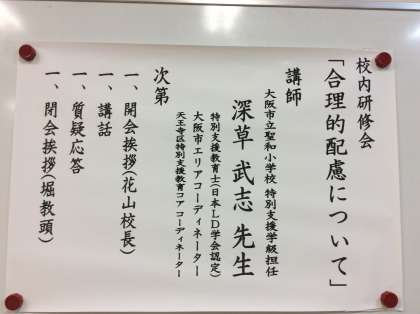 校内研修会
「合理的配慮について」
講師
大阪市立聖和小学校 特別支援学級担任
深草 武志 先生
特別支援教育士(日本LD学会認定)
大阪市エリアコーディネーター
天王寺区特別支援教育コアコーディネーター
次第
一、開会挨拶(花山校長)
一、講話
一、質疑応答
一、閉会挨拶(堀教頭)